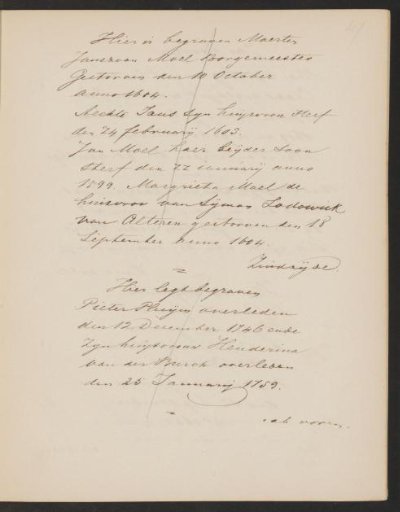 Hier is begraven Maerten
Janszoon Moel Borgemeester
Gestorven den 10 October
anno 1604.
Aechte Jans zyn huysvrou sterf
den 24 februarij 1603.
Jan Moel haer beijder soon
sterf den 22 januarij anno
1599. Margrieta Moel de
huisvrou van Symon Lodowick
van Alteren gestorven den 18
September anno 1604.
Zuidzijde.
Hier legt begraven
Pieter Pluijm overleden
den 12 December 1746 ende
zyn huysvrouw Henderina
van der Burch overleden
den 25 Januarij 1759.
als voren.